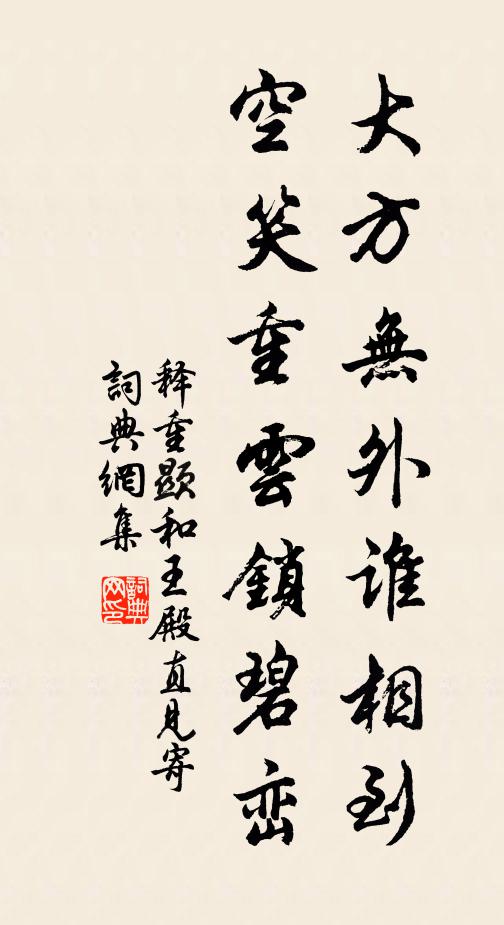 大方無外誰相到
空笑重雲鎖碧峦
释重顯和王殿直見寄
詞典網集
詞典网印